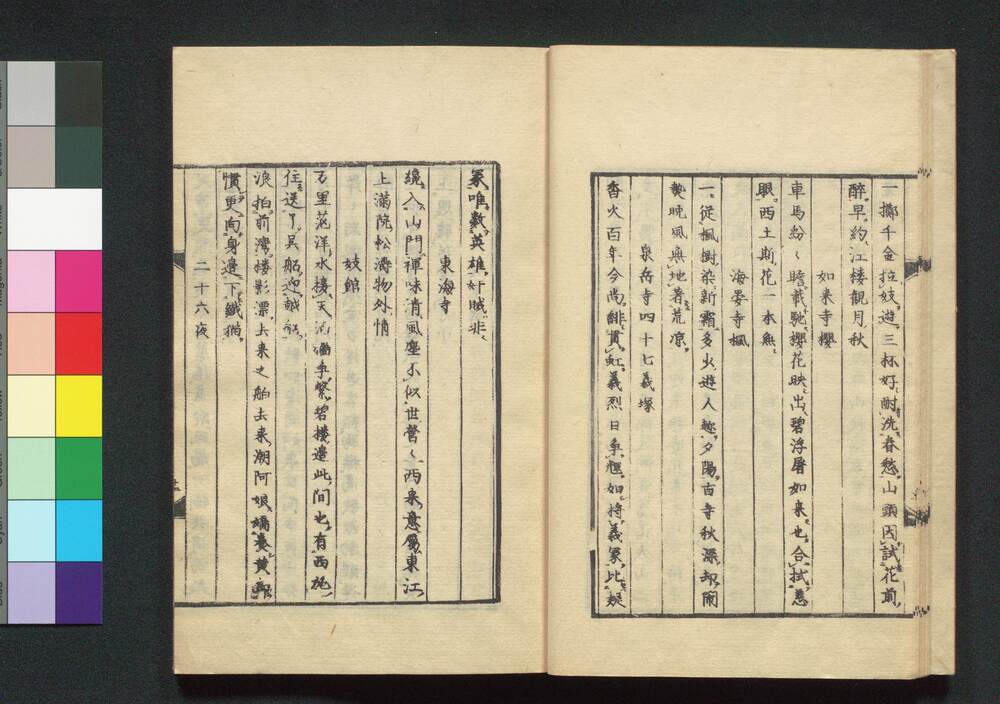 一擲千金拉妓遊三杯好酎洗春愁山頭因試花前
醉早約江楼観月秋
如来寺櫻
車馬紛〻瞻載馳櫻花映出碧浮屠如来也合拭慈
眼西土斯花一本無
海晏寺楓
一従楓樹染新霜多少遊人趂夕陽古寺秋深却閙
熱晩風無地著荒凉
泉岳寺四十七義塚
香火百年今尚緋貫虹義烈日争輝如将義冢比疑
冢唯数英雄奸賊非
東海寺
纔入山門禅味清風塵不似世営〻西来意属東江
上満院松濤物外情
妓館
万里茫洋水接天 繁碧楼邉此間也有西施
住送了呉船迎越船
浪拍前湾楼影漂去来之舶去来潮阿娘嬌養黄
慣更向身邉下鐵猫
二十六夜